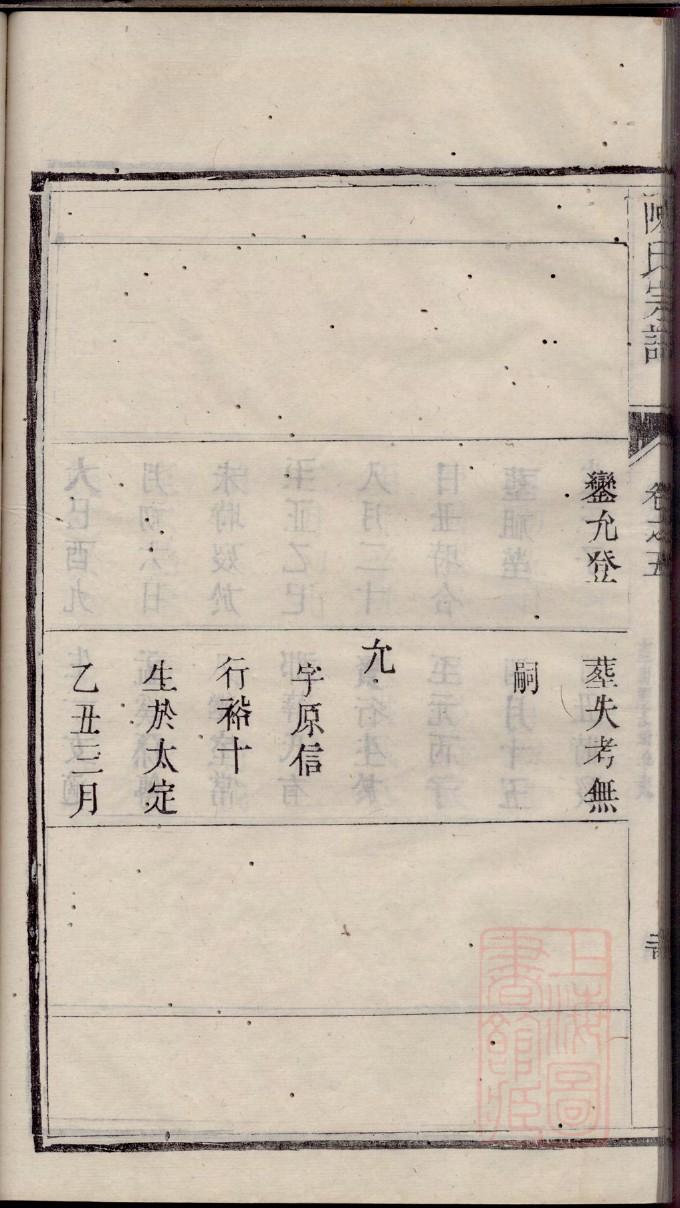 陳氏宗譜
卷之五
鑾允登
葬失考無
嗣
允
字原信
行裕十
生於太定
乙丑三月
上海圖書館藏